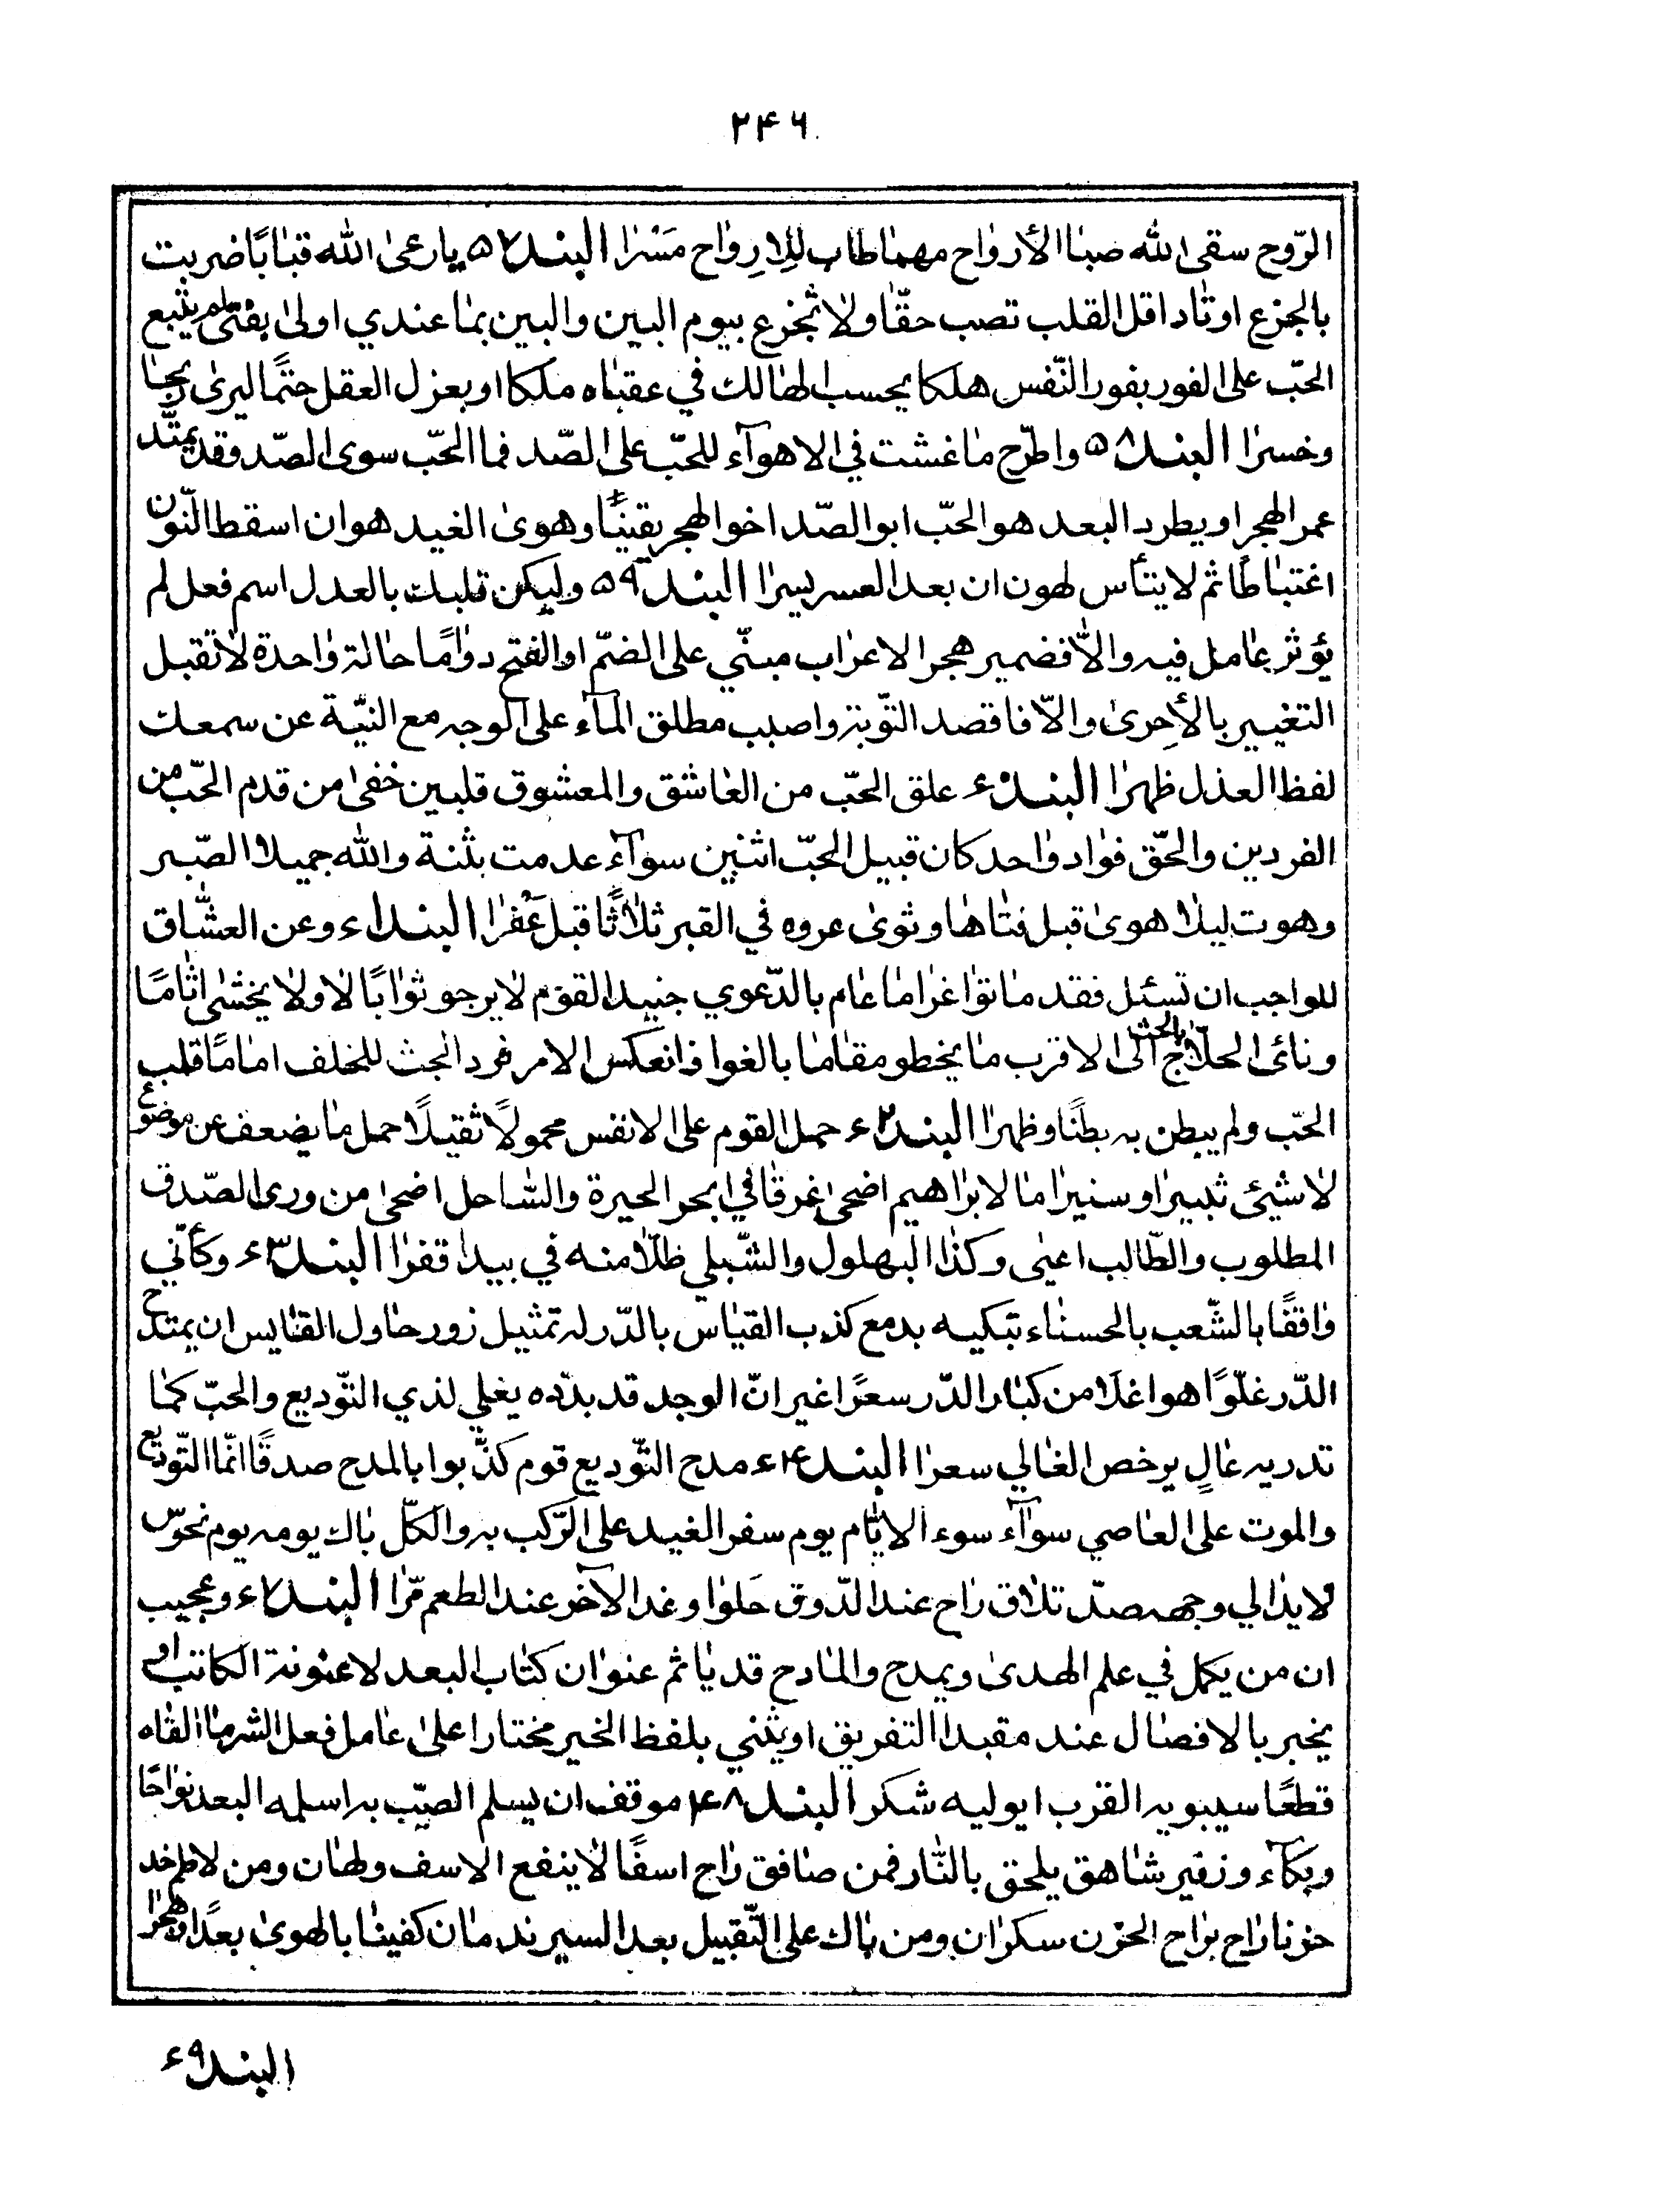 ٢۴٦
الرّوح سقى الله صبا الأرواح مهما طاب للارواح مَسْرا البند ٥٧ يا رعى الله قبابًا ضربت
بالجزع اوتاد اقل القلب تصب حقّا ولا تجزع بيوم البين والبين بما عندي اولى بفتى لم يتبع
الحبّ على الفور بفور النّفس هلكا يحسب الهالك في عقباه ملكا او بعزل العقل حتمًا ليرى ربحا
وخسرا البند ٥٨ واطرّح ما غشت في الاهوآء للحبّ على الصّد فما الحبّ سوى الصّد وقد يمتّد
عمر الهجر او يطرد البعد هو الحبّ ابو الصّد اخو الهجر يقينًا وهوى الغيد هوان اسقط النّون
اغتباطًا ثم لا يتأس لهون ان بعد العسر يسرا البند ٥٩ وليكن قلبك بالعدل اسم فعل لم
يؤثر عامل فيه والّا فضمير هجر الاعراب مبنّي على الضمّ او الفتح دوامًا حالة واحدة لا تقبل
التغيير بالأحرى والّا فاقصد التّوبة واصبب مطلق المآء على الوجه مع النيّة عن سمعك
لفظ العذل ظهرا البند ٦٠ علق الحبّ من العاشق والمعشوق قلبين خفى من قدم الحبّ من
الفردين والحقّ فواد واحد كان قبيل الحبّ اثنين سوآء عدمت بثنة والله جميلا الصّبر
وهوت ليلا هوى قبل فتاها وثوى عروه في القبر ثلاثًا قبل عَفْرا البند ٦١ وعن العشّاق
للواجب ان تسئل فقد ماتوا غراما عام بالدّعوي جنيد القوم لا يرجو ثوابًا لا ولا يخشى اثامًا
ونائى الحلّاج بالحث الى الاقرب ما يخطو مقاما بالغوا فانعكس الامر فرد الجث للخلف امامًا قلب
الحبّ ولم يبطن به بطنًا وظهرا البند ٦٢ حمل القوم على الانفس محمولًا ثقيلًا حمل ما يضعف عن موضوع
لا شيئ ثبيرا وسنيرا ما لابراهيم اضحى غرقا في ابحر الحيرة والساحل اضحى من ورى الصّدق
المطلوب والطّالب اعيى وكذا البهلول والشّبلي ظلّا منه في بيدا قفرا البند ٦٣ وكأنّي
واقفًا بالشّعب بالحسناء تبكيه بدمع كذب القياس بالدّر له تمثيل زور حاول القايس ان يمتدح
الدّر غلّوًا هو اغلا من كبار الدّر سعرًا غير انّ الوجد قد بدّده يغلي لذي التّوديع والحبّ كما
تدريه غالٍ يرخص الغالي سعرا البند ٦۴ مدح التّوديع قوم كذّبوا بالمدح صدقًا انّما التّوديع
والموت على العاصي سوآء سوء الايّام يوم سفر الغيد على الرّكب به والكلّ باك يومه يوم نحوّس
لا يدالي وجه صدّ تلاق راح عند الذّوق حَلوا وغد الآخر عند الطعم مّرا البند ٦٧ وعجيب
ان من يكمل في علم الهدى ويمدح والمادح قد ياثم عنوان كتاب البعد لا عنونة الكاتب او
يخبر بالافصال عند مقبدا التفريق او يثني بلفظ الخير مختارا على عامل فعل الشر ما القاه
قطعًا سيبويه القرب ايوليه شكرا البند ٦٨ موقف ان يسلم الصبّ به اسلمه البعد نواحًا
وبكآء وزفير شاهق يلحق بالنّار فمن صافق راح اسفًا لا ينفع الاسف ولهان ومن لاطم خد
حزنا راح براح الحزن سكران ومن باك على التّقبيل بعد السير ندمان كفينا بالهوى بعدًا وهجرا
البند ٦٩